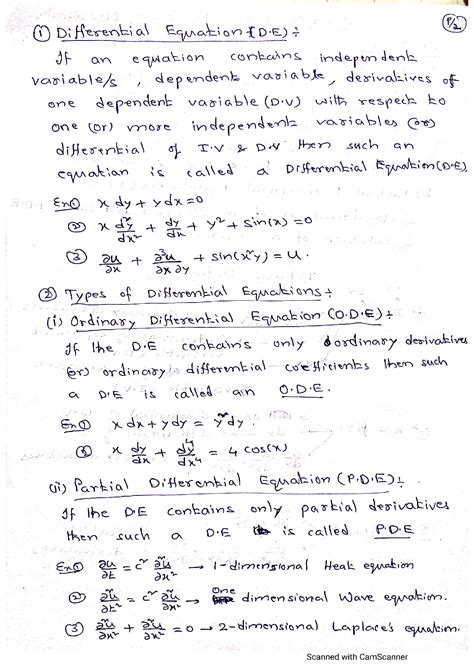 P/2
① Differential Equation (D.E) ÷
If an equation contains independent
variable/s, dependent variable, derivatives of
one dependent variable (D.V) with respect to
one (or) more independent variables (or)
differential of I.V & D.V then such an
equation is called a Differential Equation (D.E).
Ex① x dy + y dx = 0
② x d²y/dx² + dy/dx + y² + sin(x) = 0
③ ∂u/∂x + ∂³u/∂x∂y + sin(x²y) = u.
② Types of Differential Equations ÷
(i) Ordinary Differential Equation (O.D.E) ÷
If the D.E contains only ordinary derivatives
(or) ordinary differential coefficients then such
a D.E is called an O.D.E.
Ex① x dx + y dy = y² dy.
② x dy/dx + d⁴y/dx⁴ = 4 cos(x)
(ii) Partial Differential Equation (P.D.E) ÷
If the D.E contains only partial derivatives
then such a D.E is called P.D.E
Ex① ∂u/∂t = c² ∂²u/∂x² → 1-dimensional Heat equation
② ∂²u/∂t² = c² ∂²u/∂x² → One dimensional Wave equation.
③ ∂²u/∂x² + ∂²u/∂y² = 0 → 2-dimensional Laplace's equation.
Scanned with CamScanner